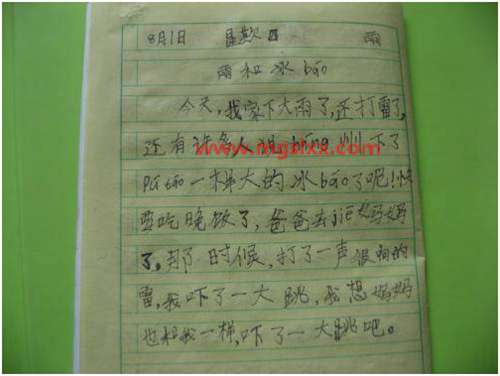 8月1日 星期日 雨
雨和冰báo
今天,我家下大雨了,还打雷了,
还有许多人说 bīng 州下了
pú táo 一样大的冰báo了呢!快
要吃晚饭了,爸爸去jiē妈妈
了,那时候,打了一声很响的
雷,我吓了一大跳,我想妈妈
也和我一样,吓了一大跳吧。
www.mgzxx.com